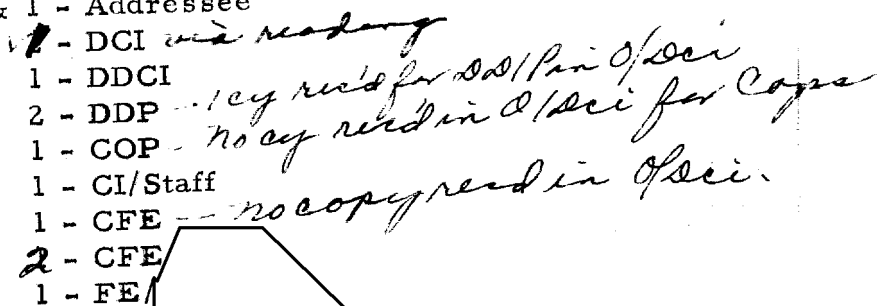 & 1 - Addressee
1 - DCI via reading
1 - DDCI
2 - DDP -- 1 cy rec'd for DD/P in O/DCI
1 - COP - no cy rec'd in O/DCI for Cops
1 - CI/Staff
1 - CFE -- no copy recd in O/DCI.
2 - CFE
1 - FE/